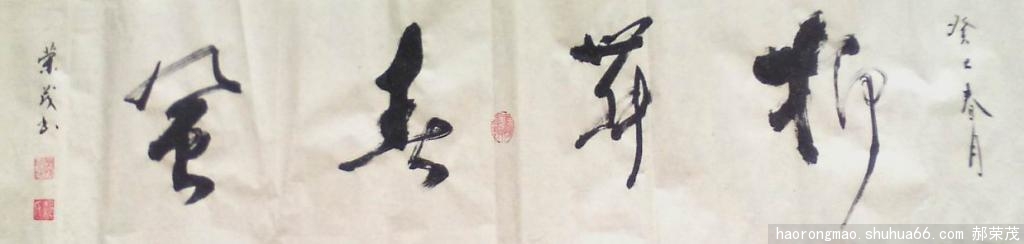 癸巳春月
柳舞春風
荣茂书
haorongmao.shuhua66.com 郝荣茂